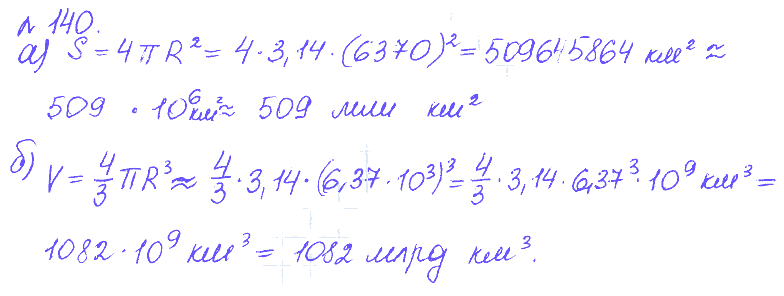 № 140.
а) S = 4πR² = 4·3,14·(6370)² = 509645864 км² ≈
509 · 10⁶ км² ≈ 509 млн км²
б) V = 4/3 πR³ ≈ 4/3 · 3,14 · (6,37·10³)³ = 4/3 · 3,14 · 6,37³ · 10⁹ км³ =
1082 · 10⁹ км³ = 1082 млрд км³.